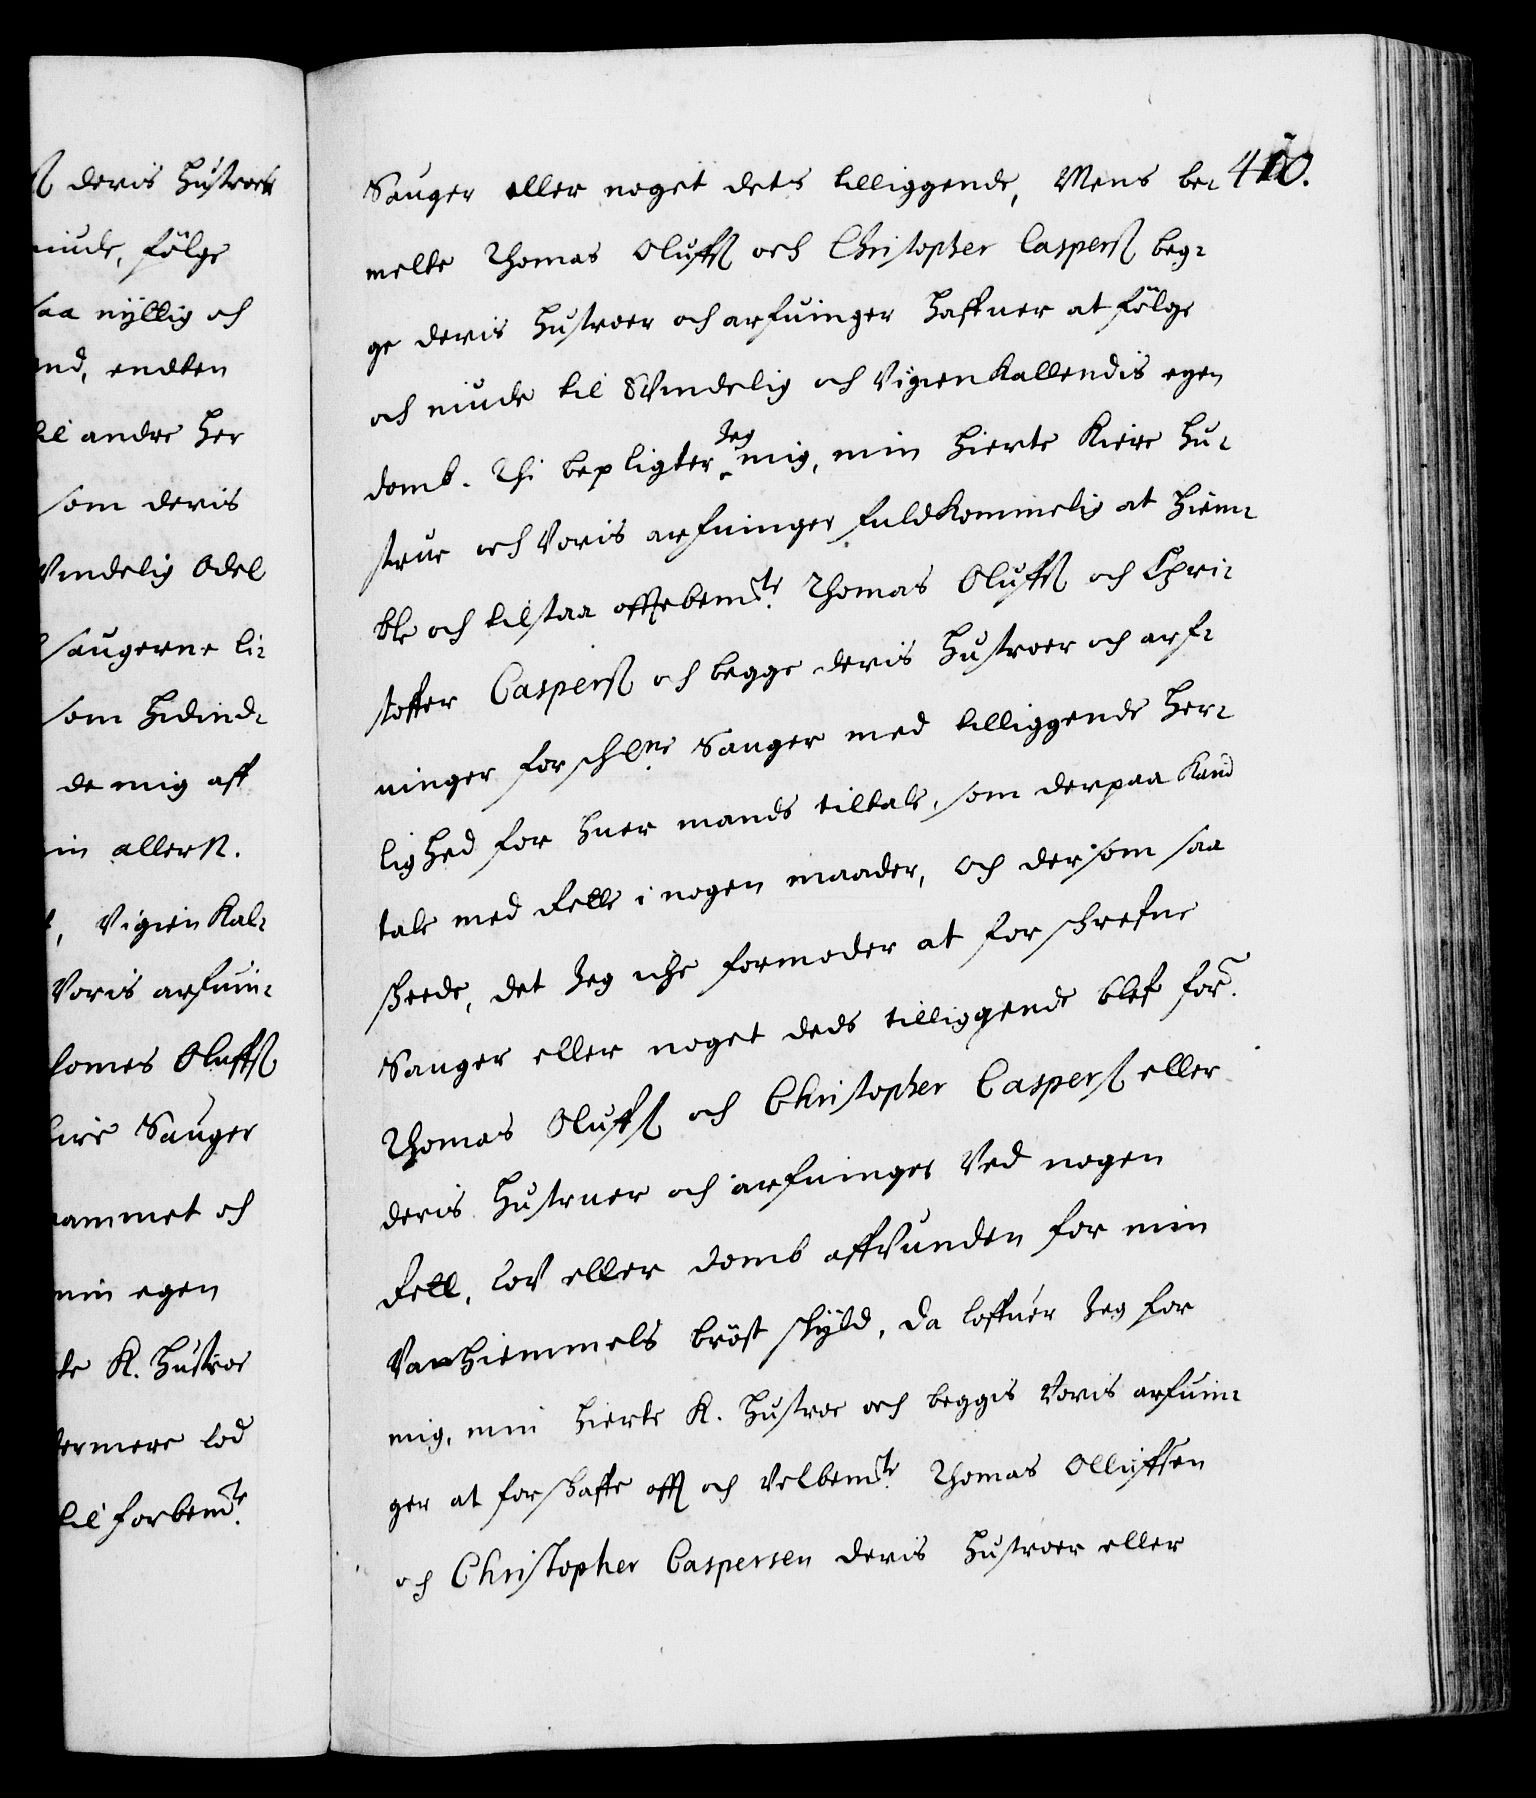 ß deris Hustroer
niude, følge
saa nyttig och
end, endten
til andre her
som deris
Vindelig Odel
saugerne li-
som hidind-
de mig aff
min allerst.
Vigien Kal-
Voris arfuin-
homes Olufß
Sauger
sammet och
min egen
te K. Hustroe
termere lod
til forbemdte
410.
Sauger eller noget dets tilliggende, Mens be-
melte Thomas Olufß och Christopher Casperß beg-
ge deris Hustroer och arfuinger haffuer at følge
och niude til Vindelig och Vigienkallendis egen
domb. Thi bepligter Jeg mig, min hierte kiere Hu-
strue och Voris arfuinger fuldkommelig at hiem-
ble och tilstaa offtebemdte Thomas Olufß och Chri-
stoffer Casperß och begge deris Hustroer och arf-
uinger forschne Sauger med tilliggende her-
lighed for huer mands tiltale, som derpaa kand
tale med Rette i nogen maader, och dersom saa
skeede, det Jeg iche formoder at forschrefne
Sauger eller noget deds tilliggende blef for.
Thomas Olufß och Christopher Casperß eller
deris Hustruer och arfuinger Ved nogen
Rett, lov eller domb affVunden for min
Vanhiemmels brøst skyld, da loffuer Jeg for
mig, min hierte K. Hustroe och beggis Voris arfuin-
ger at forskaffe offt och Velbemdte Thomas Ollufsen
och Christopher Caspersen deris Hustroer eller